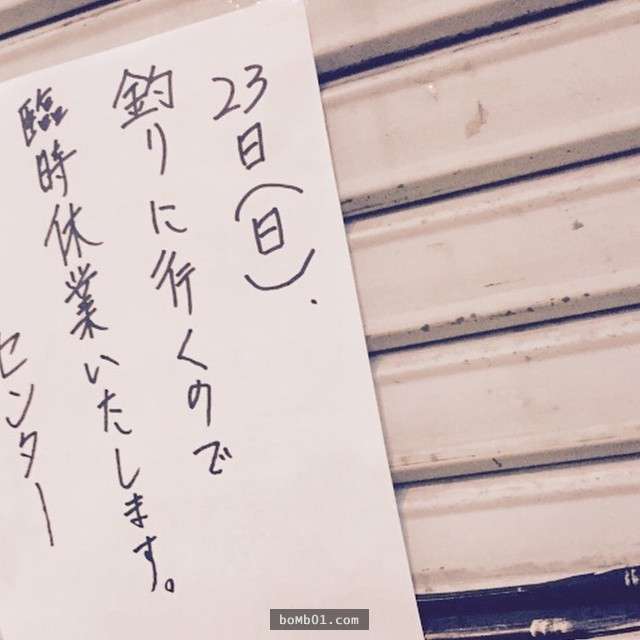 23日(日).
釣りに行くので
臨時休業いたします。
センター
boMb01.com